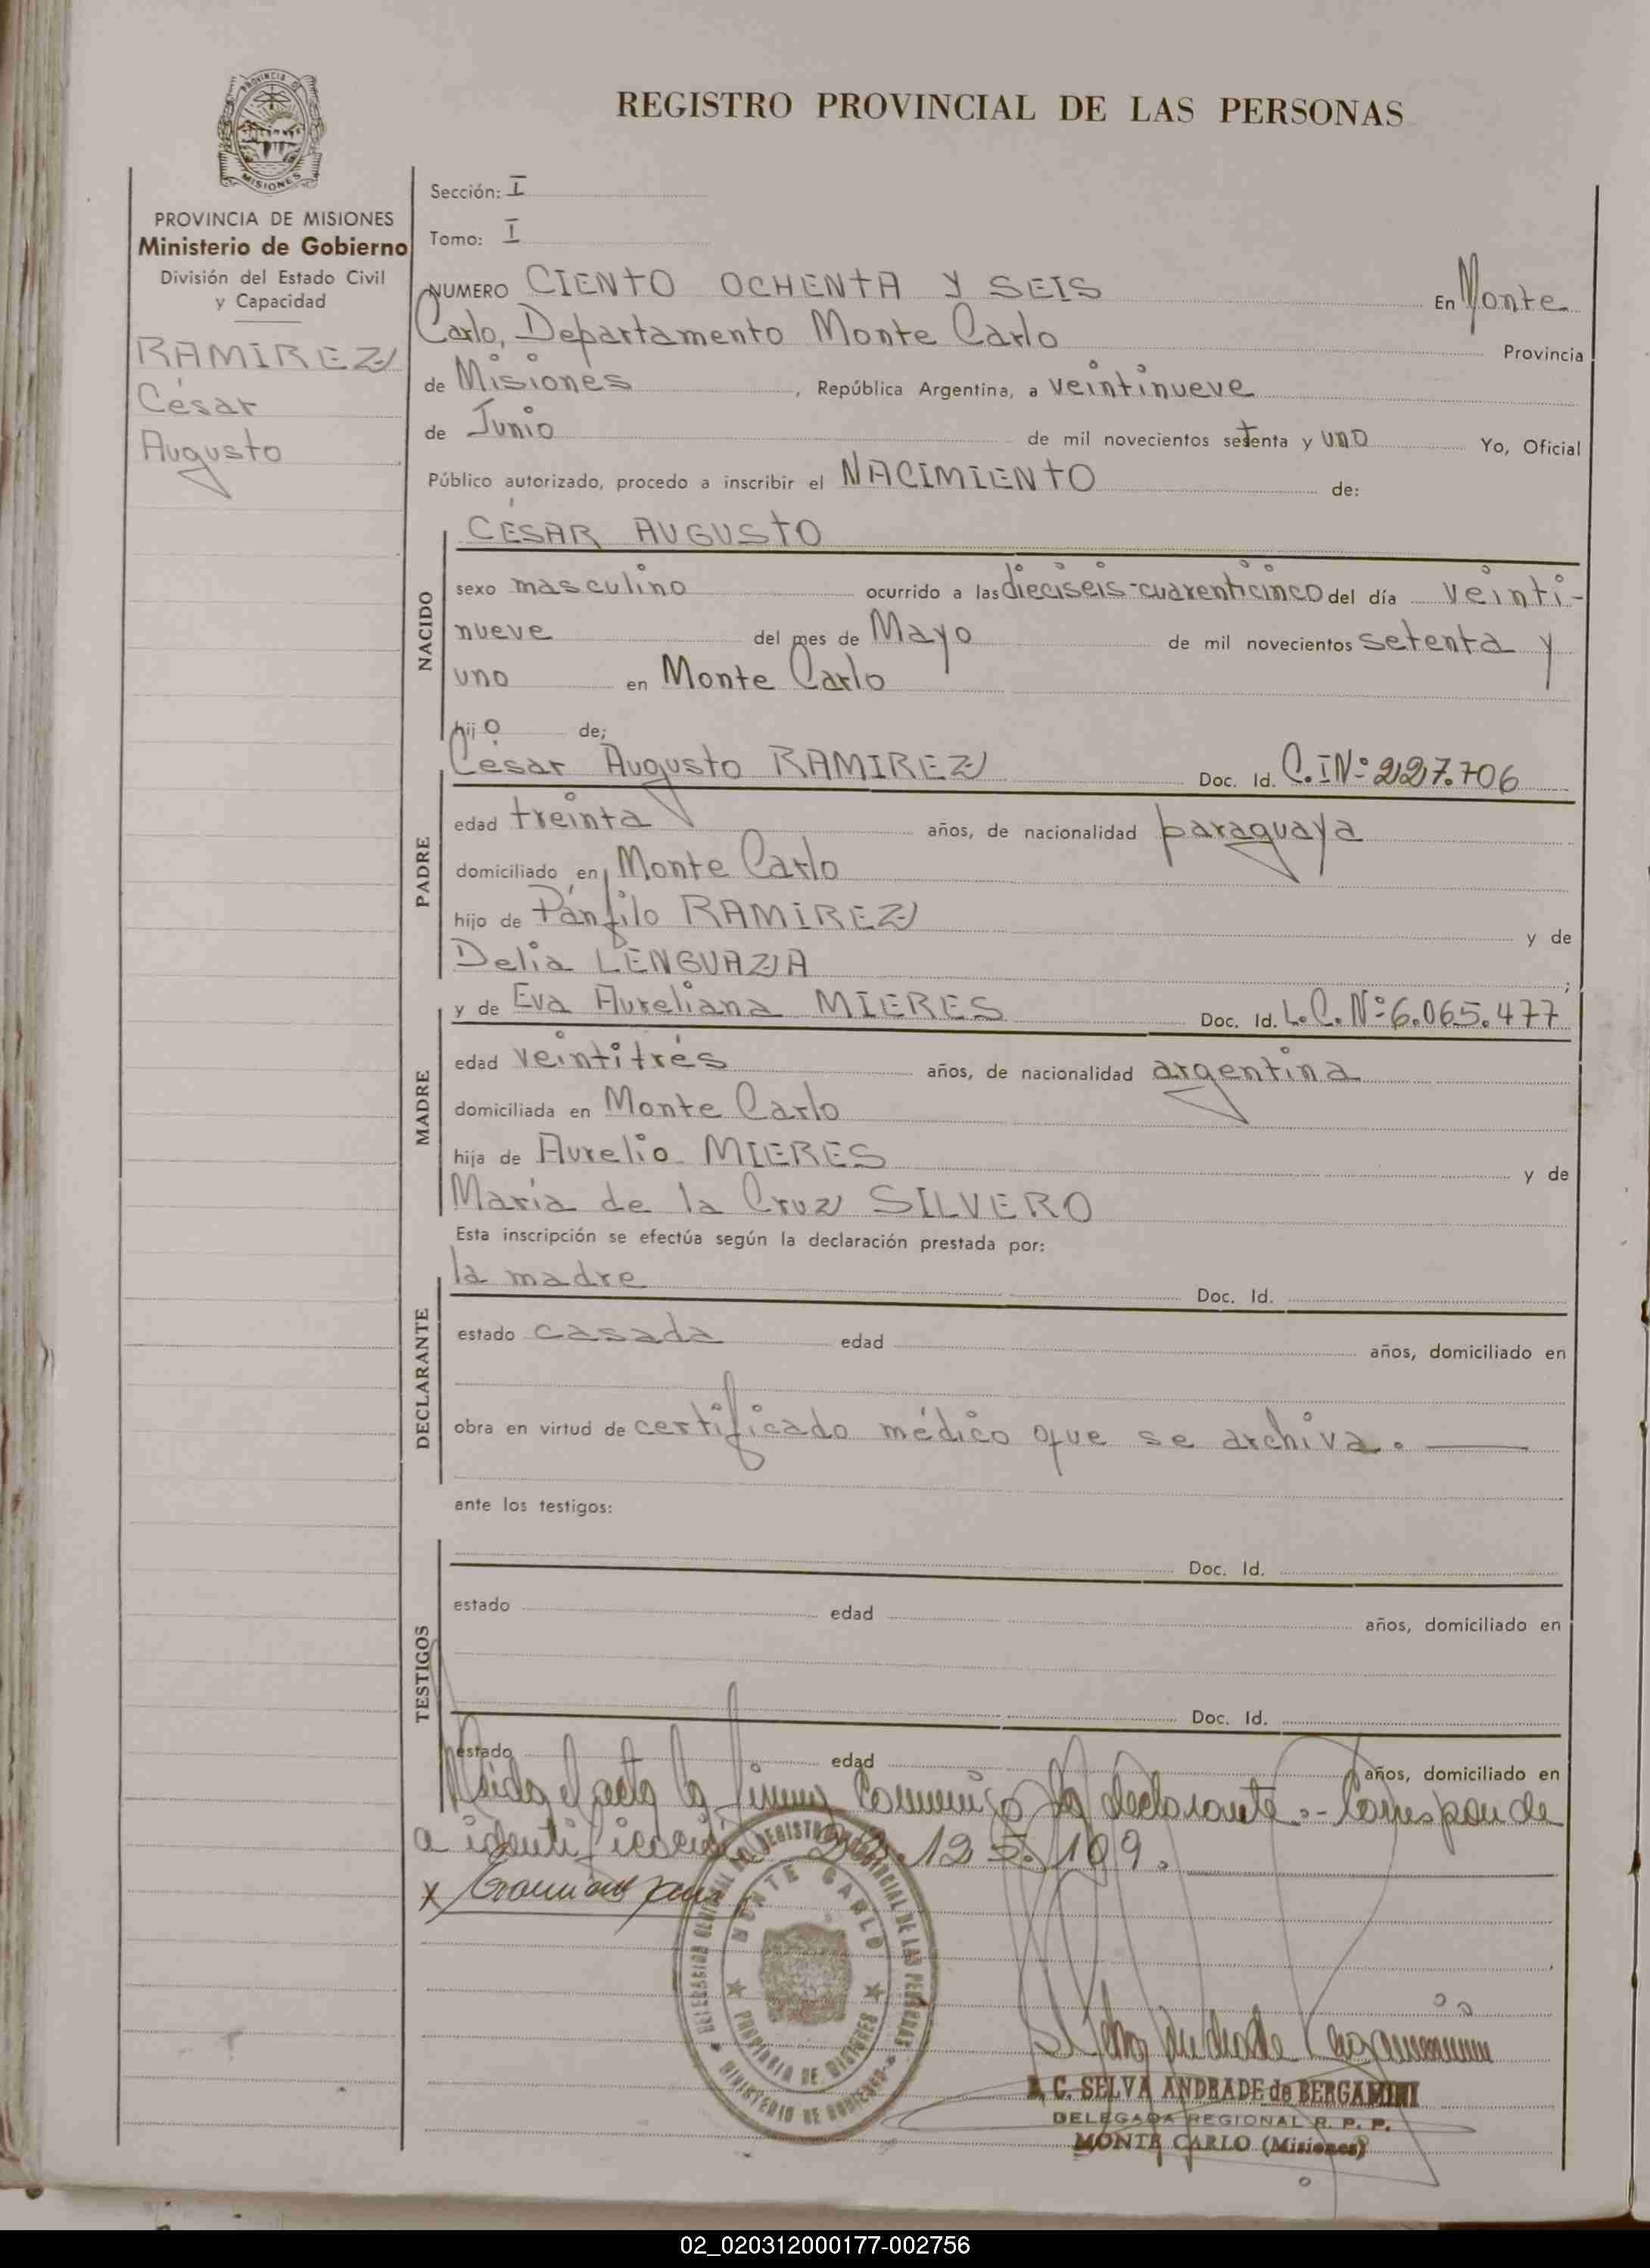 REGISTRO PROVINCIAL DE LAS PERSONAS
PROVINCIA DE MISIONES
Ministerio de Gobierno
División del Estado Civil
y Capacidad
RAMIREZ
César
Augusto
Sección: I
Tomo: I
NUMERO CIENTO OCHENTA Y SEIS En Monte
Carlo, Departamento Monte Carlo Provincia
de Misiones, República Argentina, a veintinueve
de Junio de mil novecientos setenta y uno Yo, Oficial
Público autorizado, procedo a inscribir el NACIMIENTO de:
NACIDO
CÉSAR AUGUSTO
sexo masculino ocurrido a las dieciseis-cuarenticinco del día veinti-
nueve del mes de Mayo de mil novecientos setenta y
uno en Monte Carlo
hijo de;
PADRE
César Augusto RAMIREZ Doc. Id. C.I Nº 227.706
edad treinta años, de nacionalidad paraguaya
domiciliado en Monte Carlo
hijo de Pánfilo RAMIREZ y de
Delia LENGUAZA ;
MADRE
y de Eva Aureliana MIERES Doc. Id. L.C. Nº 6.065.477
edad veintitrés años, de nacionalidad argentina
domiciliada en Monte Carlo
hija de Aurelio MIERES y de
María de la Cruz SILVERO
Esta inscripción se efectúa según la declaración prestada por:
DECLARANTE
la madre Doc. Id.
estado casada edad años, domiciliado en
obra en virtud de certificado médico que se archiva.
ante los testigos:
TESTIGOS
Doc. Id.
estado edad años, domiciliado en
Doc. Id.
estado edad años, domiciliado en
Leida el acta la firma conmigo la declarante.- Corresponde
a identificación
MONTE CARLO
PROVINCIA DE MISIONES
MINISTERIO DE GOBIERNO
C. SELVA ANDRADE de BERGAMINI
DELEGADA REGIONAL R. P. P.
MONTE CARLO (Misiones)
02_020312000177-002756